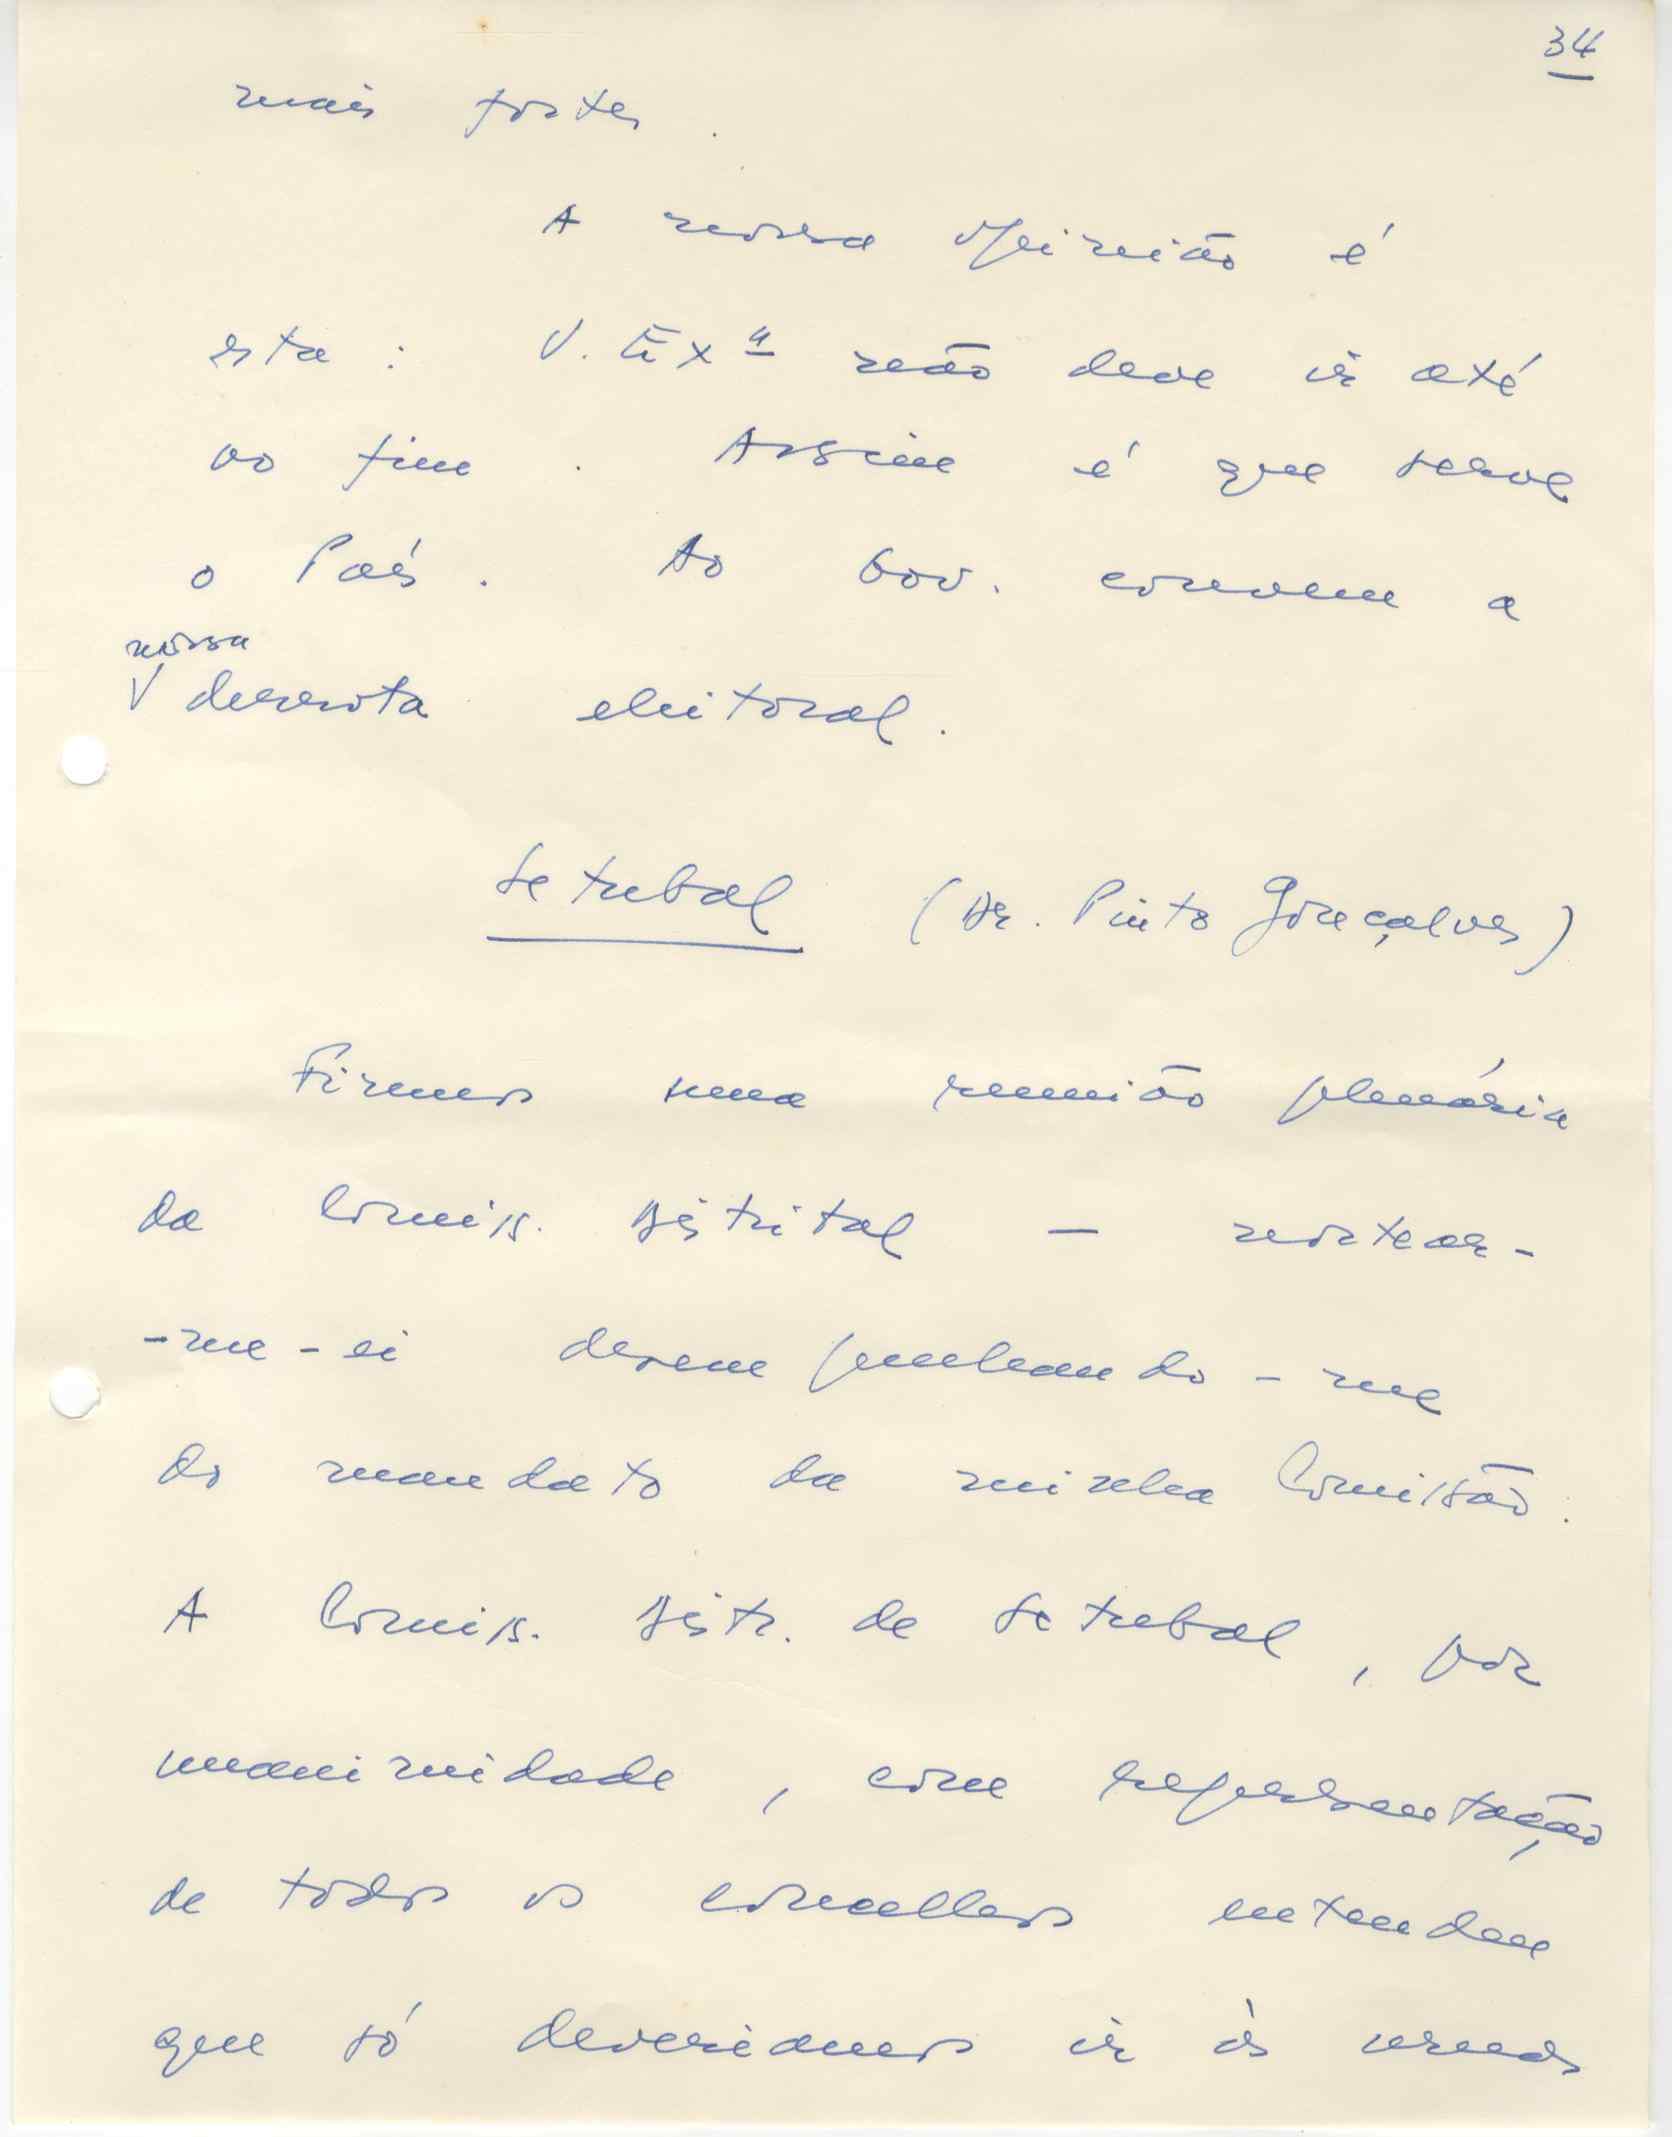 34
mais fortes.
A nossa opinião é
esta: V. Exª não deve ir até
ao fim. Assim é que serve
o País. Ao Gov. convem a
nossa
V derrota eleitoral.
Setubal (Dr. Pinto Gonçalves)
Fizemos uma reunião plenária
da Comiss. Distrital — nortear-
-me-ei desempenhando-me
do mandato da minha Comissão:
A Comiss. Distr. de Setubal, por
unanimidade, com representação
de todos os concelhos entendem
que só deveriamos ir às urnas